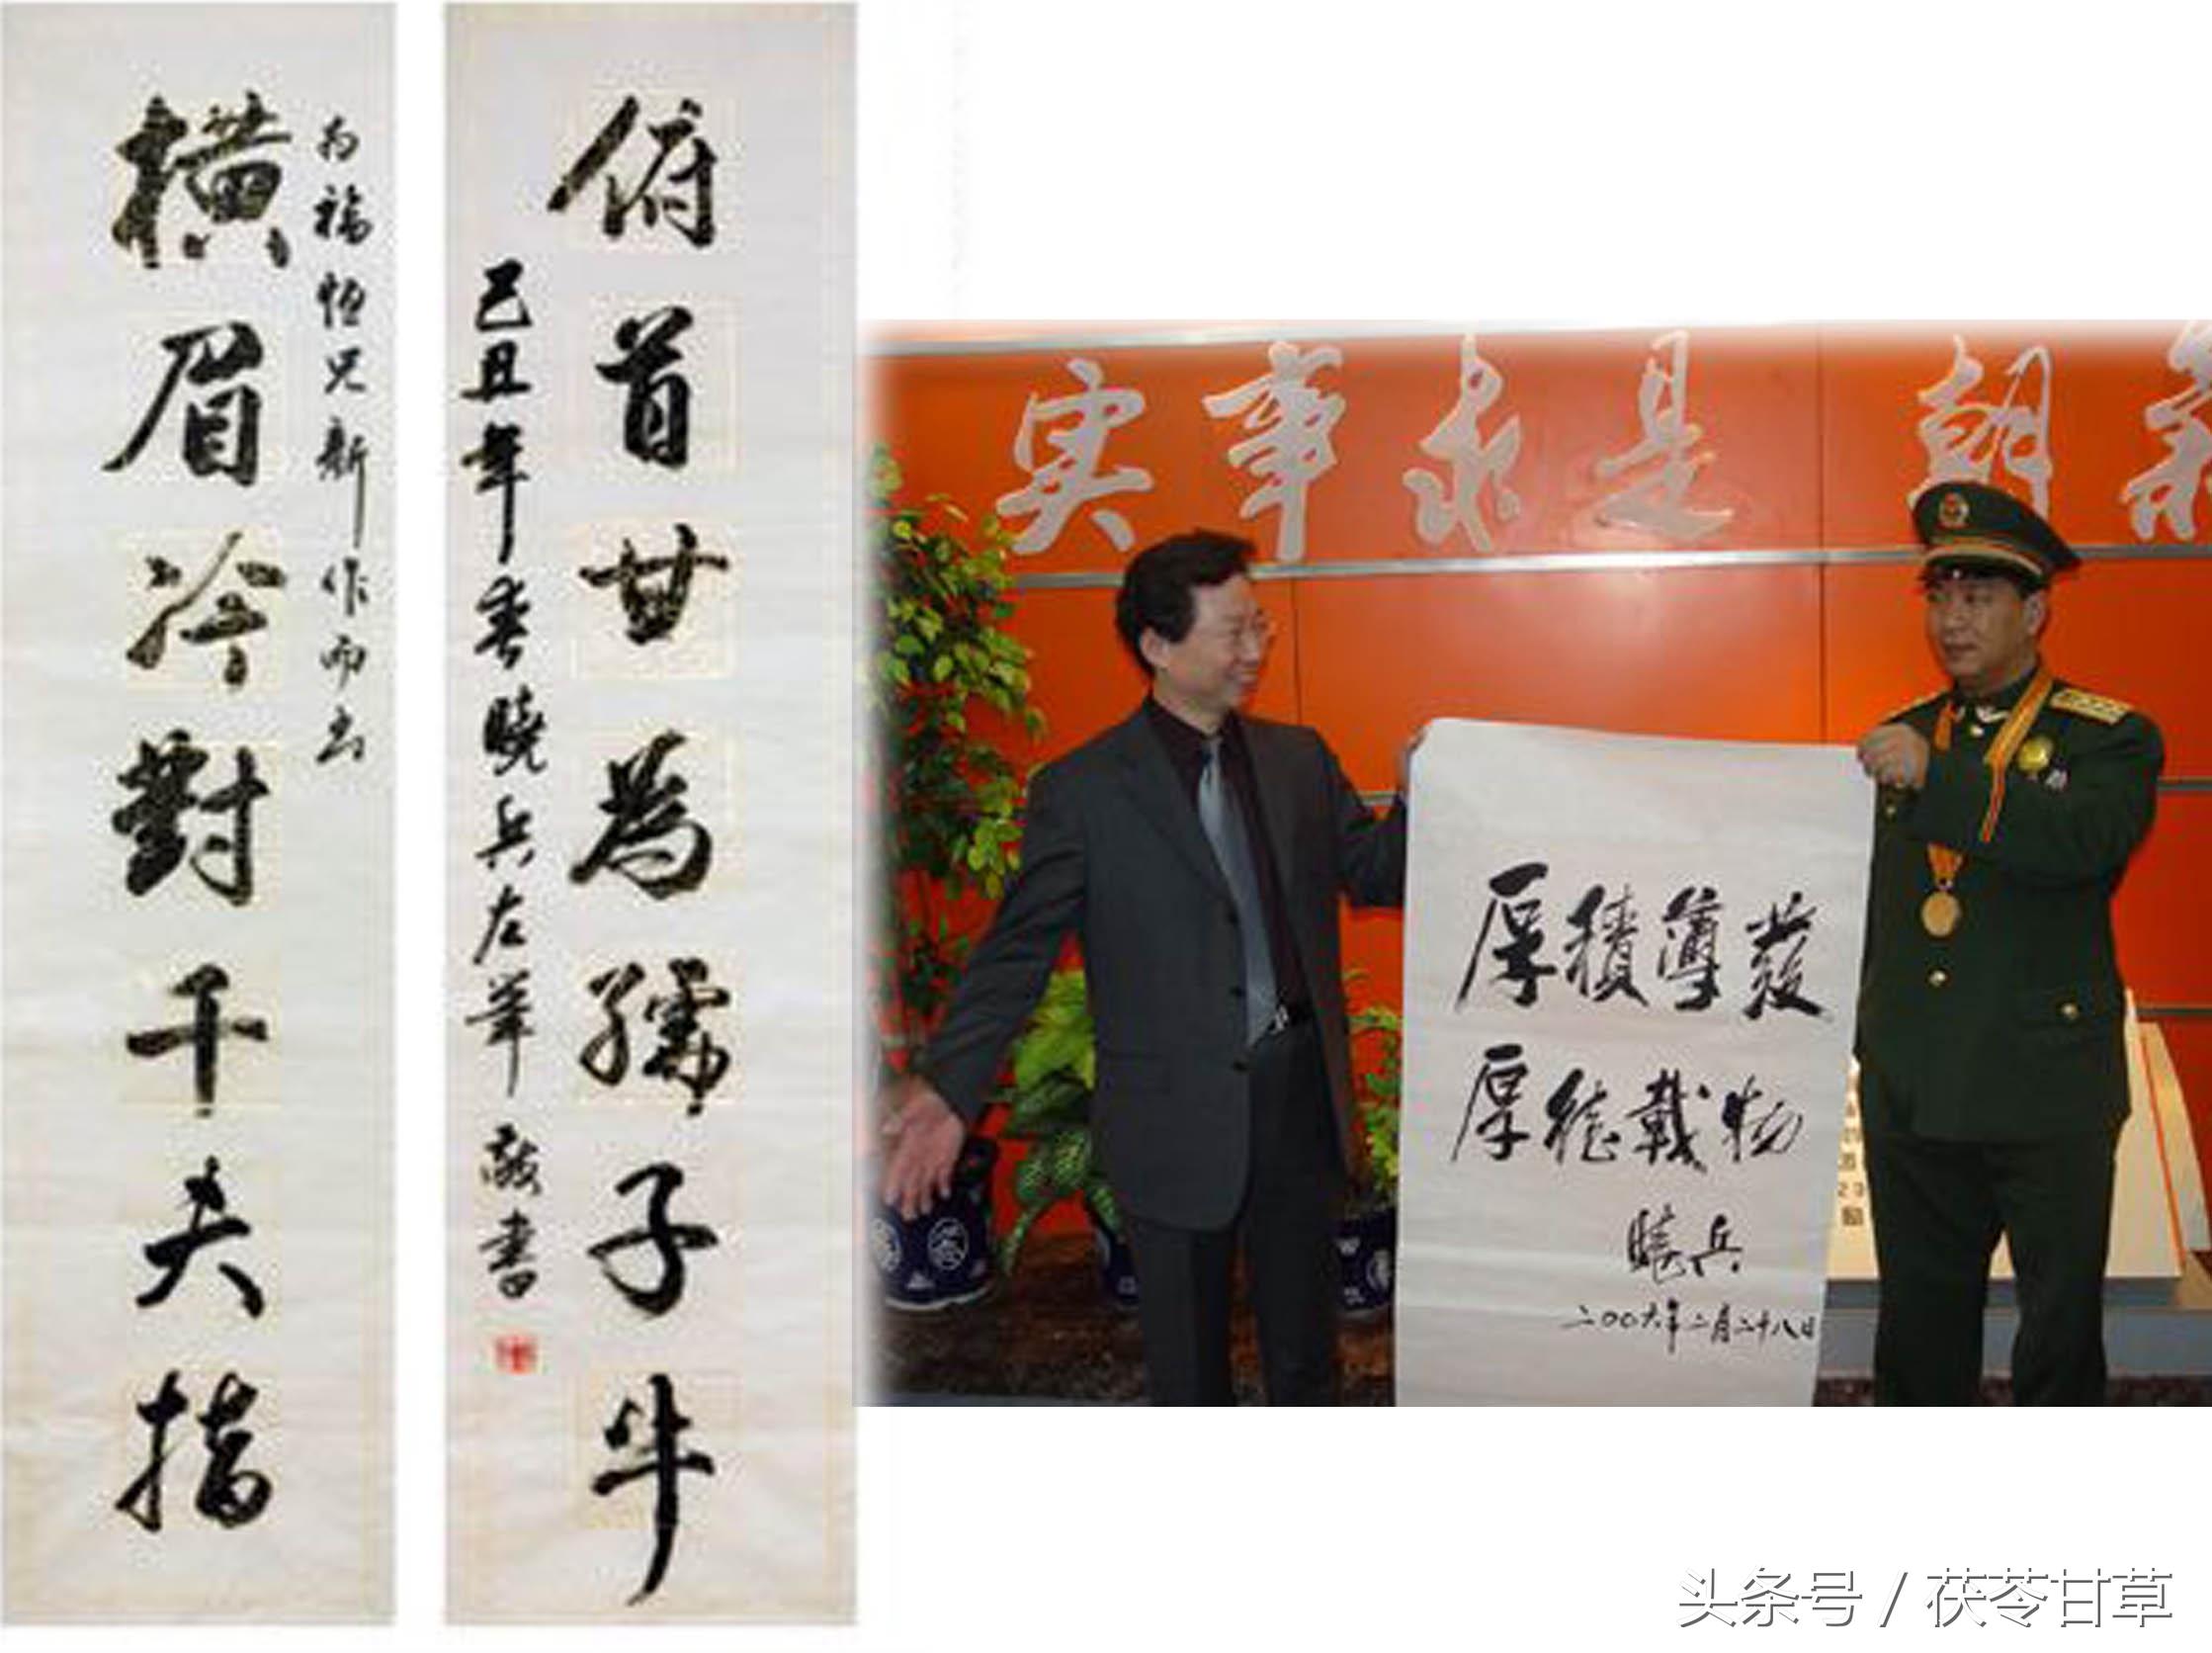 橫眉冷對千夫指
为福恒兄新作而书
俯首甘為孺子牛
己丑年春曉兵左笔敬書
实事求是 朝
厚積薄發
厚德載物
曉兵
二〇〇六年二月二十八日
头条号 / 茯苓甘草